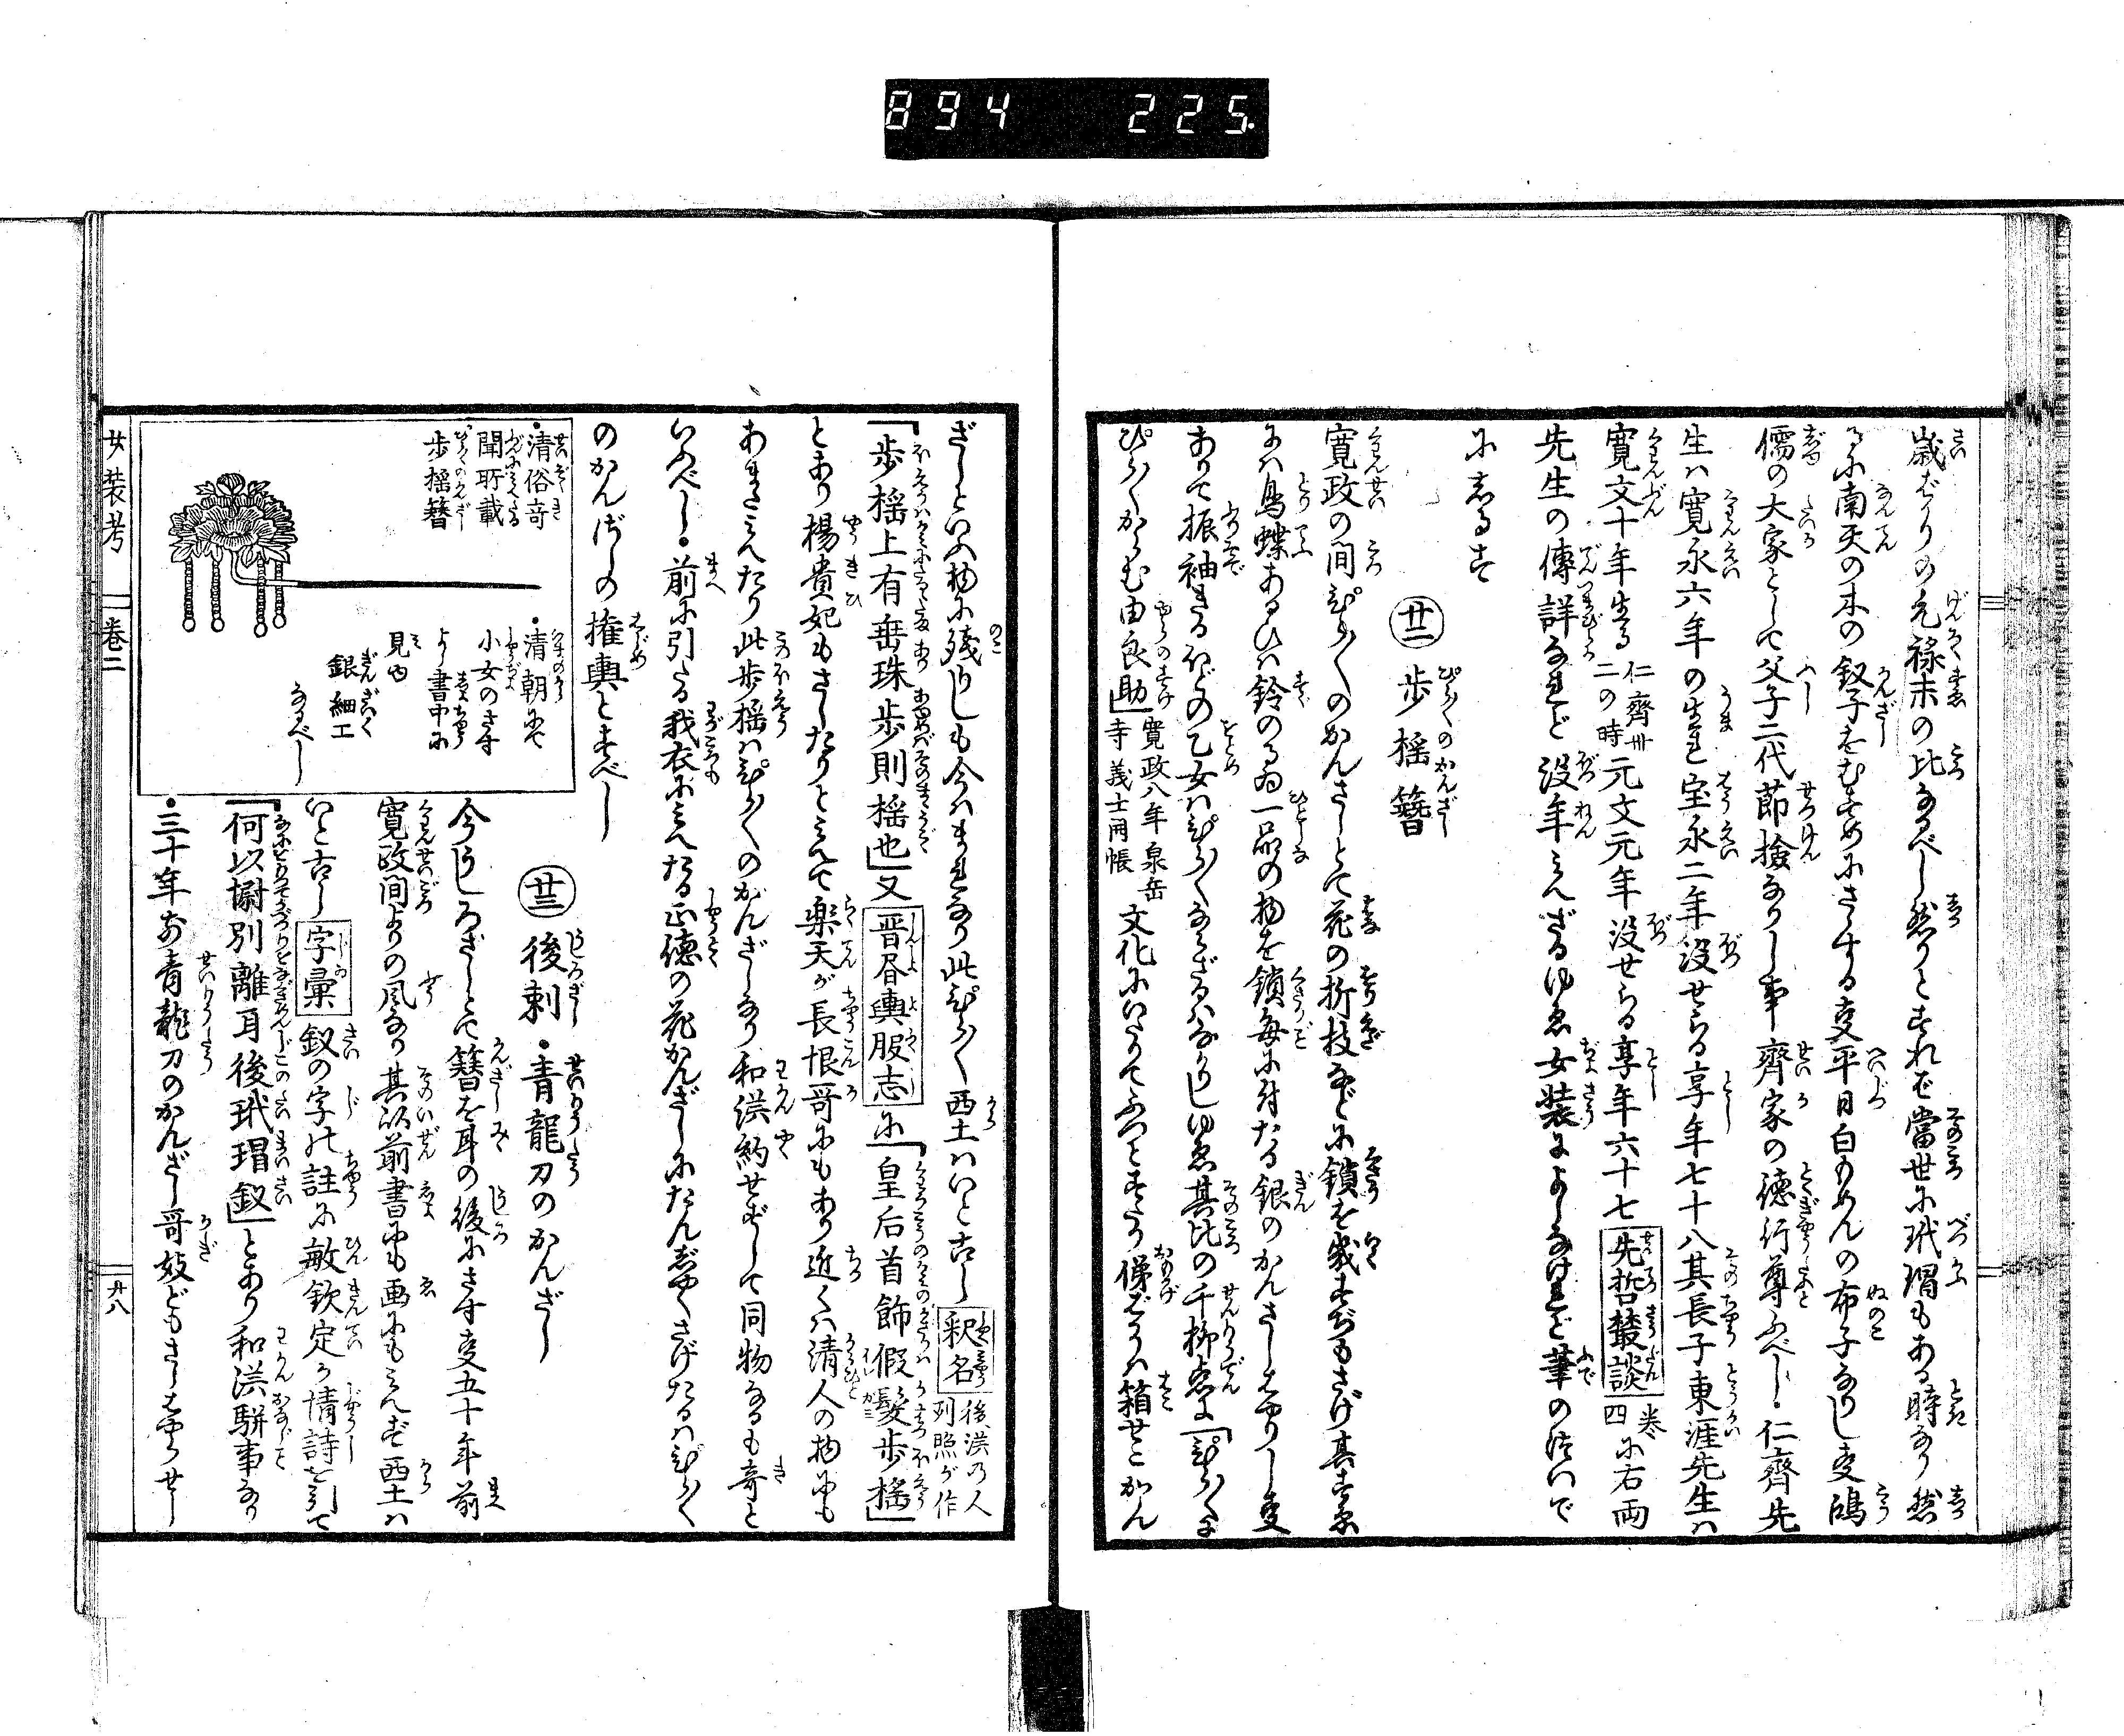 894 225.
歳ばかりの元禄末の比なるべし然りとすれば當世に玳瑁もある時なり然
るに南天の木の釵子をむすめにさゝする事平日白もめんの布子なりし事鴻
儒の大家として父子二代節倹なりし事齊家の徳行尊ふべし・仁齊先
生ハ寛永六年の生れ宝永二年没せらる享年七十八其長子東涯先生ハ
寛文十年生る仁齊卅二の時元文元年没せらる享年六十七先哲叢談巻四に右両
先生の傳詳なれど没年見えざるゆゑ女装によしなけれど筆の次いで
にしるす
廿二 歩揺簪
寛政の間びらびらのかんざしとて花の折枝などに鎖を幾すぢもさげ其すゑ
にハ鳥蝶あるひハ鈴のるゐ一品の物を鎖毎に付たる銀のかんざしはやりし事
ありて振袖きるほどの乙女ハびらびらならざるハなかりしゆゑ其比の千柳点に「びらびらに
びらびらからむ由良助」寛政八年泉岳寺義士開帳文化にいたりてふつとすたり俤ばかりハ箱せこかん
ざしといふ物に残りしも今ハまれなり此びらびら西土ハいと古し釈名後漢の人列熙が作
「歩揺上有垂珠歩則揺也」又晋書輿服志に「皇后首飾假髪歩揺」
とあり楊貴妃もさしたりと見えて楽天が長恨哥にもあり近くハ清人の物にも
あまた見えたり此歩揺ハびらびらのかんざしなり和漢約せずして同物なるも奇と
いふべし・前に引たる我衣に見へたる正徳の花かんざしにたんざくさげたるハびらびら
のかんざしの権輿とすべし
・清俗奇
聞所載
歩揺簪
・清朝にて
小女のさす
よし書中に
見ゆ
銀細工
なるべし
廿三 後刺・青龍刀のかんざし
今うしろざしとて簪を耳の後にさす事五十年前
寛政間よりの風なり其以前書にも画にも見えず西土ハ
いと古し字彙釵の字の註に敏欽定が情詩を引て
「何以慰別離耳後玳瑁釵」とあり和漢駢事なり
・三十年前青龍刀のかんざし哥妓どもさしはやらせし
女装考
巻二
廿八